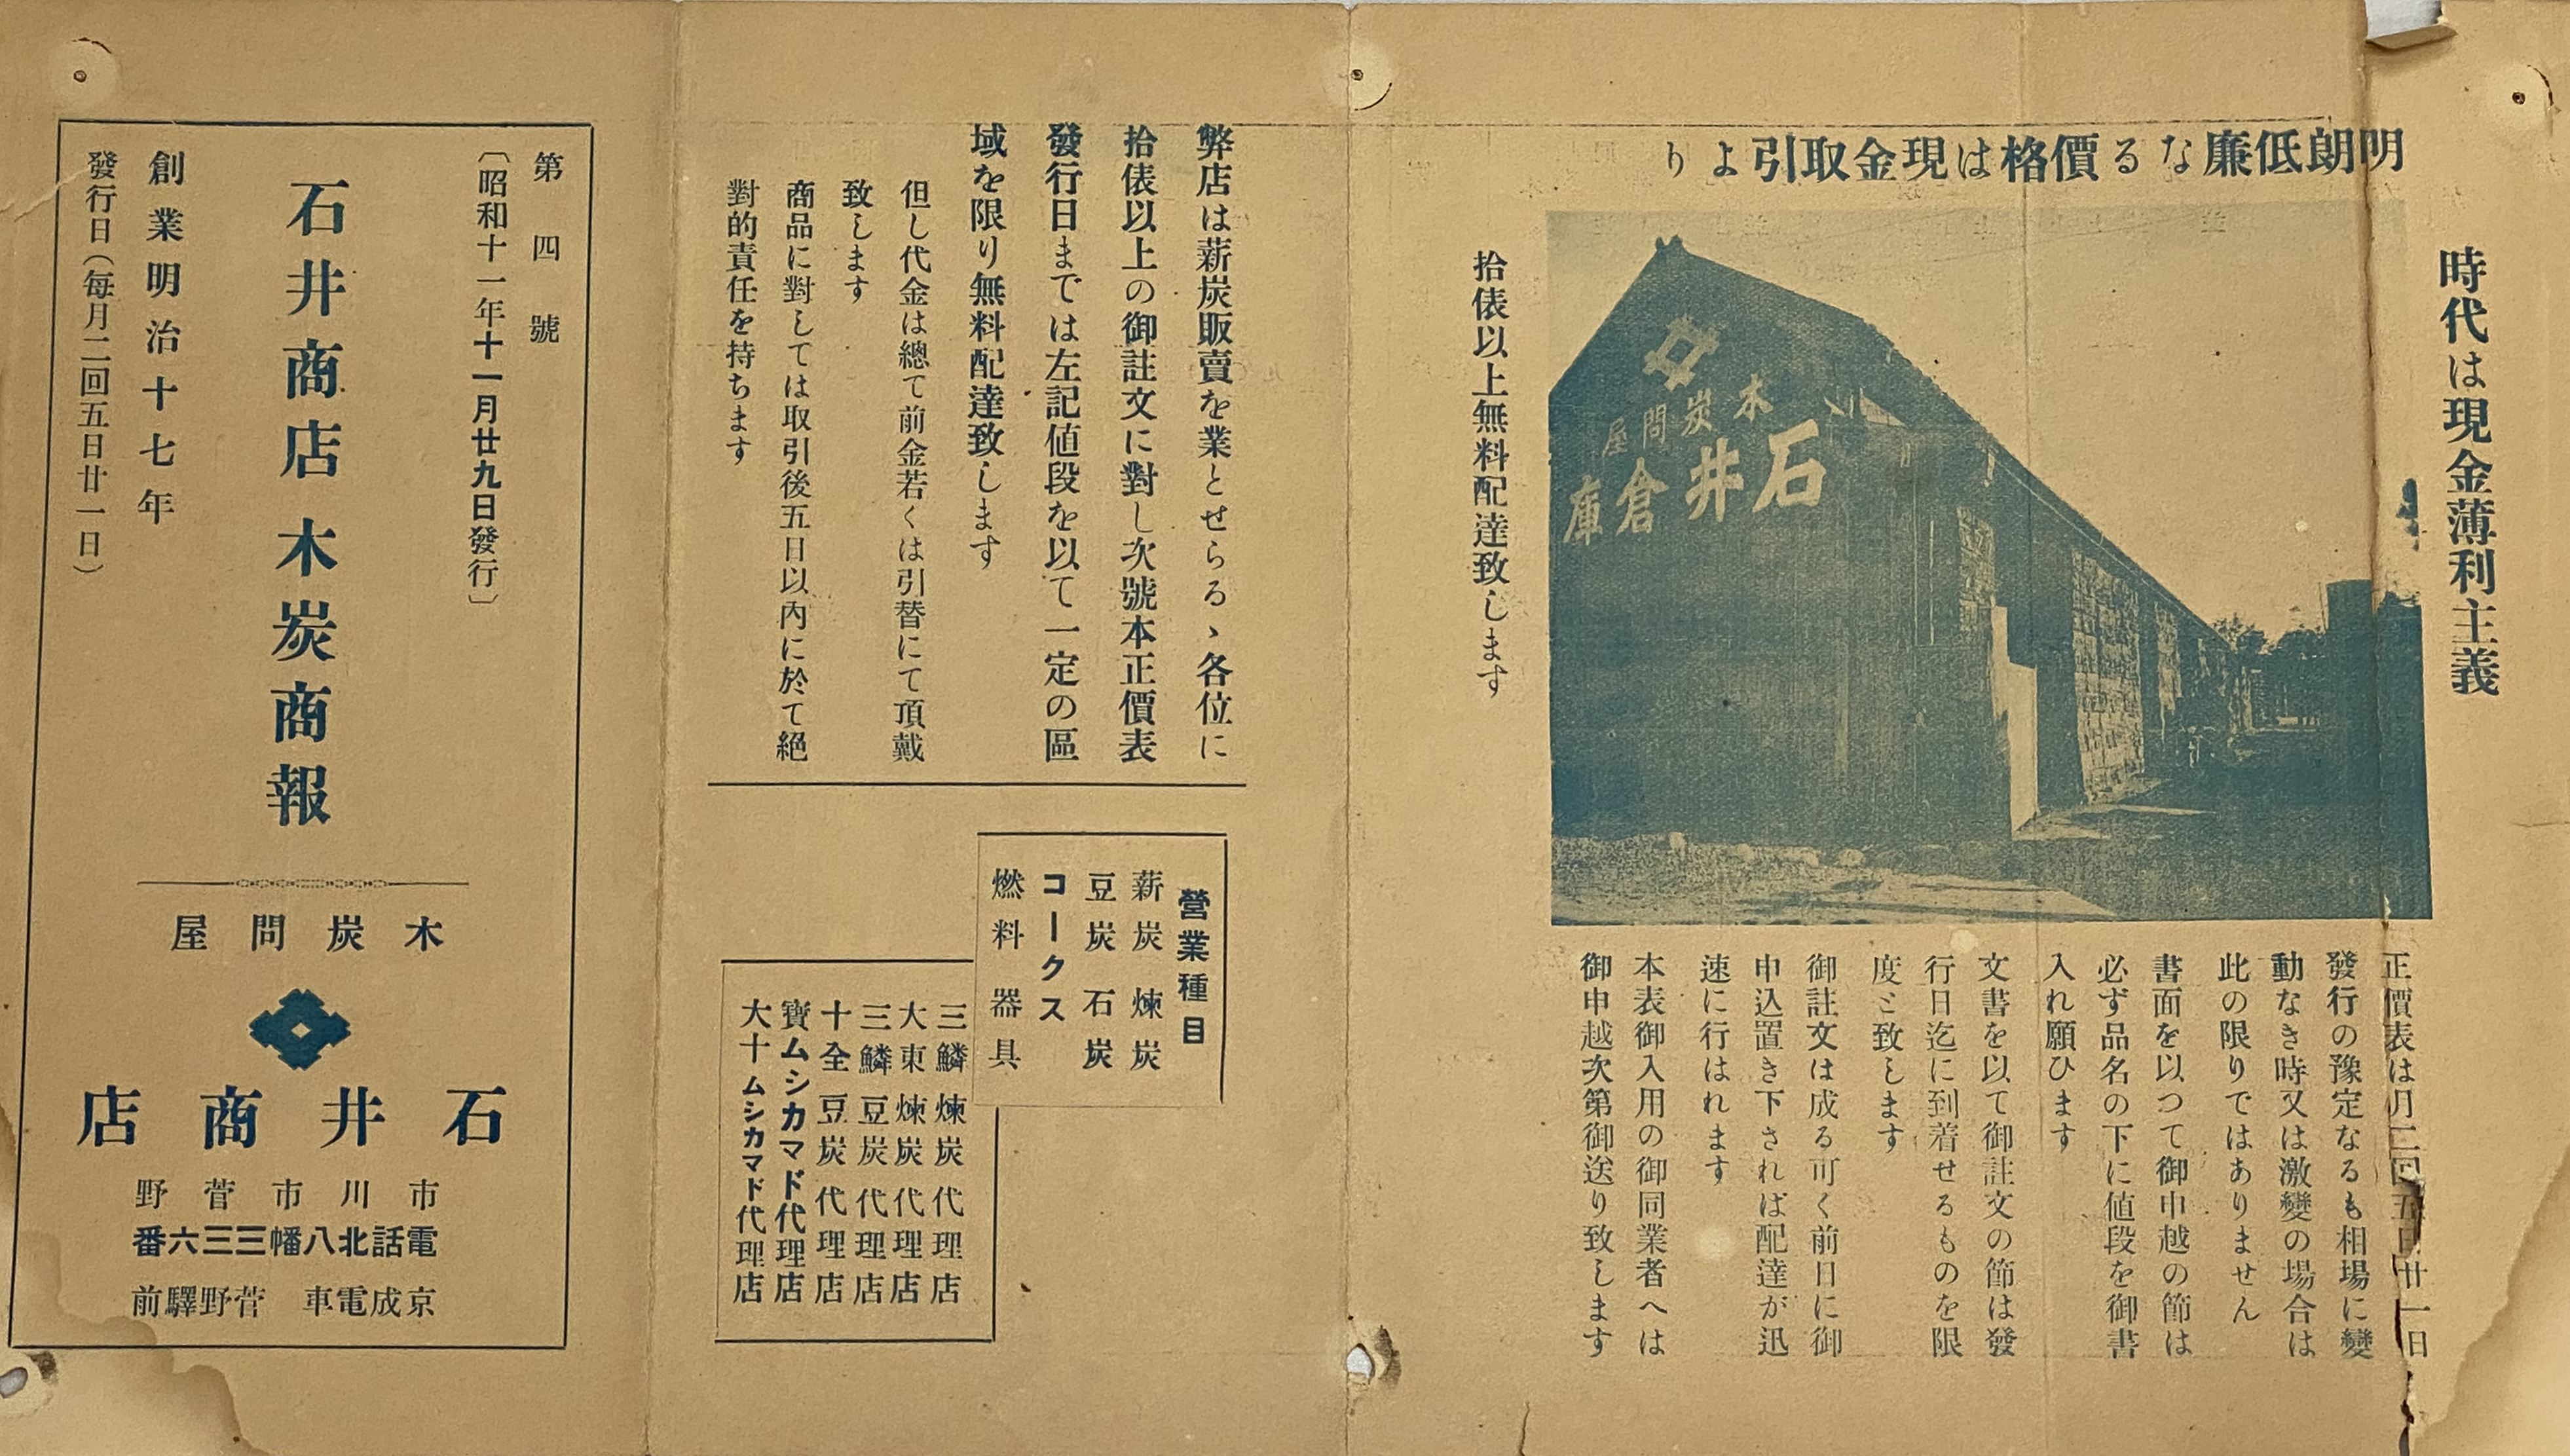 明朗低廉なる價格は現金取引より
時代は現金薄利主義
木炭問屋
石井倉庫
拾俵以上無料配達致します
正價表は月二回五日廿一日
發行の豫定なるも相場に變
動なき時又は激變の場合は
此の限りではありません
書面を以つて御申越の節は
必ず品名の下に値段を御書
入れ願ひます
文書を以て御註文の節は發
行日迄に到着せるものを限
度と致します
御註文は成る可く前日に御
申込置き下されば配達が迅
速に行はれます
本表御入用の御同業者へは
御申越次第御送り致します
弊店は薪炭販賣を業とせらるゝ各位に
拾俵以上の御註文に對し次號本正價表
發行日までは左記値段を以て一定の區
域を限り無料配達致します
但し代金は總て前金若くは引替にて頂戴
致します
商品に對しては取引後五日以內に於て絕
對的責任を持ちます
營業種目
薪炭 煉炭
豆炭 石炭
コークス
燃料器具
三鱗煉炭代理店
大東煉炭代理店
三鱗豆炭代理店
十全豆炭代理店
寶ムシカマド代理店
大十ムシカマド代理店
第四號
〔昭和十一年十一月廿九日發行〕
石井商店木炭商報
創業明治十七年
發行日（每月二回五日廿一日）
木炭問屋
石井商店
市川市菅野
電話北八幡三三六番
京成電車 菅野驛前